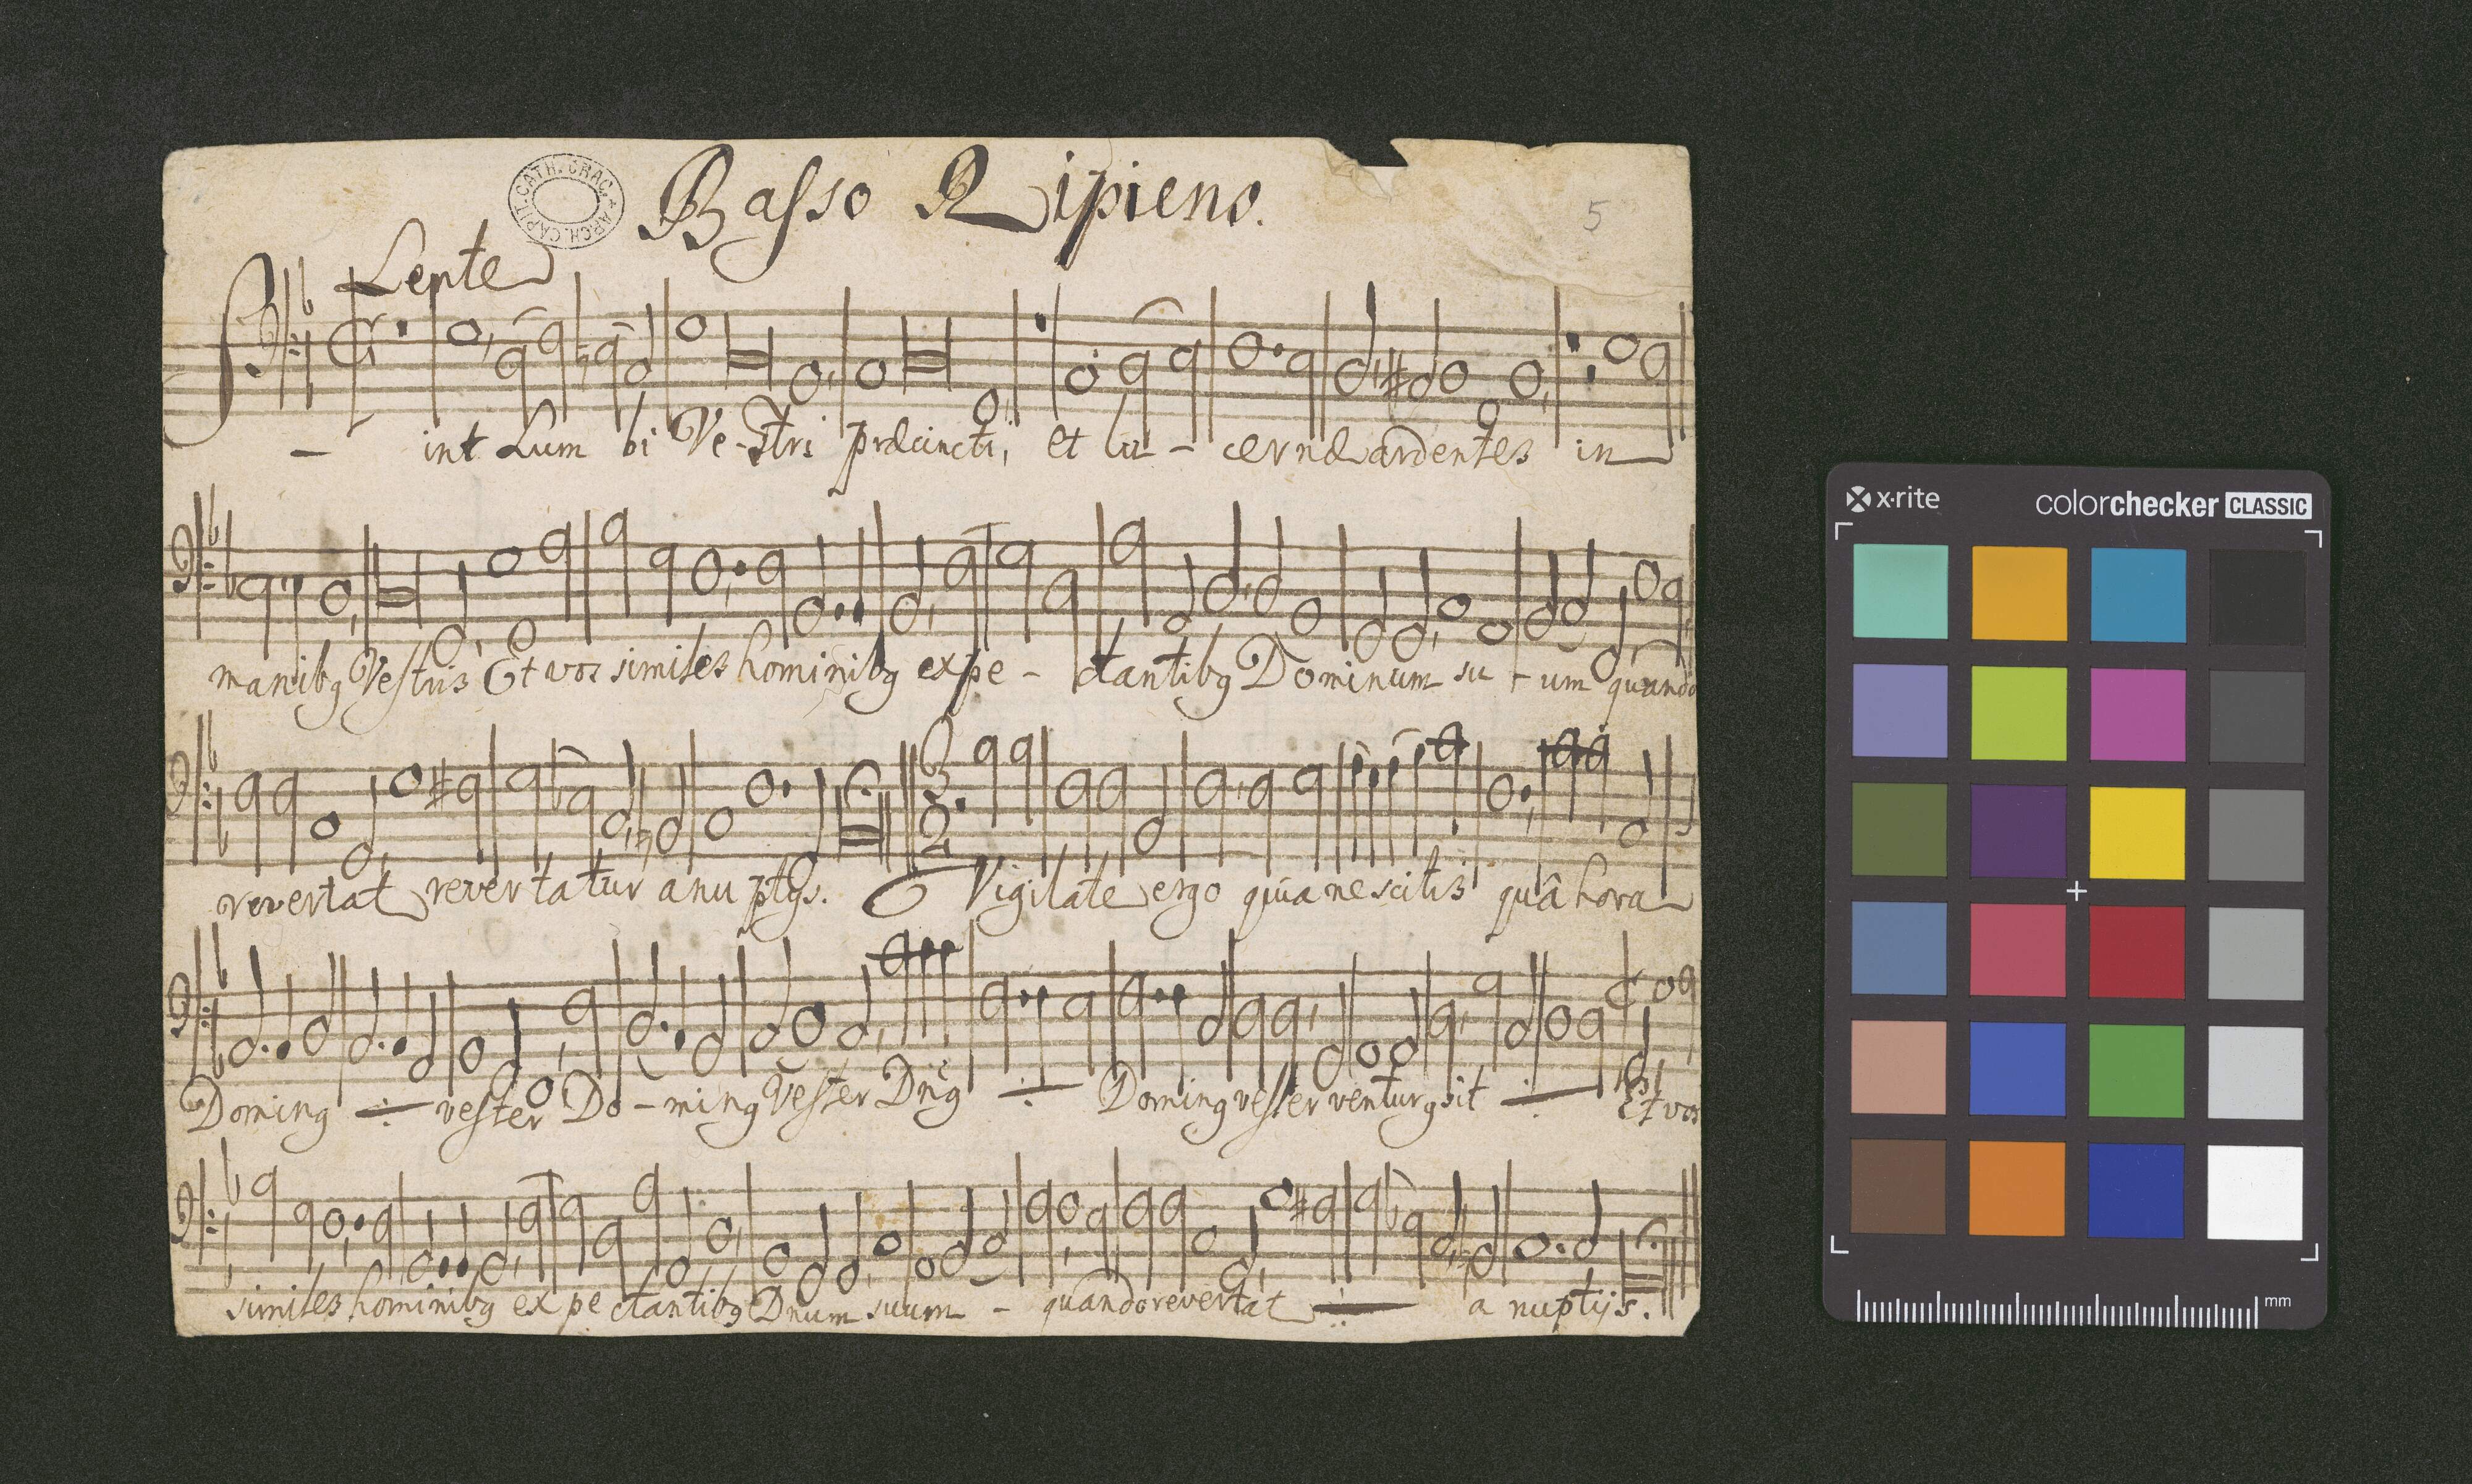 Basso Ripieno.
CAPIT. CATH. CRAC. ARCH.
5
Lente
Sint Lumbi Ve-stri præcincti, et lu - cernæ ardentes in
manibq Vestris Et vos similes hominibq expe - ctantibq Dominum su - um quando
revertat revertatur a nuptys. Vigilate ergo quia nescitis quâ hora
Dominq vester Do - minq Vester Dnq Dominq vester venturq sit Et vos
similes hominibq expectantibq Dnum suum - quando revertat a nuptijs.
x-rite
colorchecker CLASSIC
mm